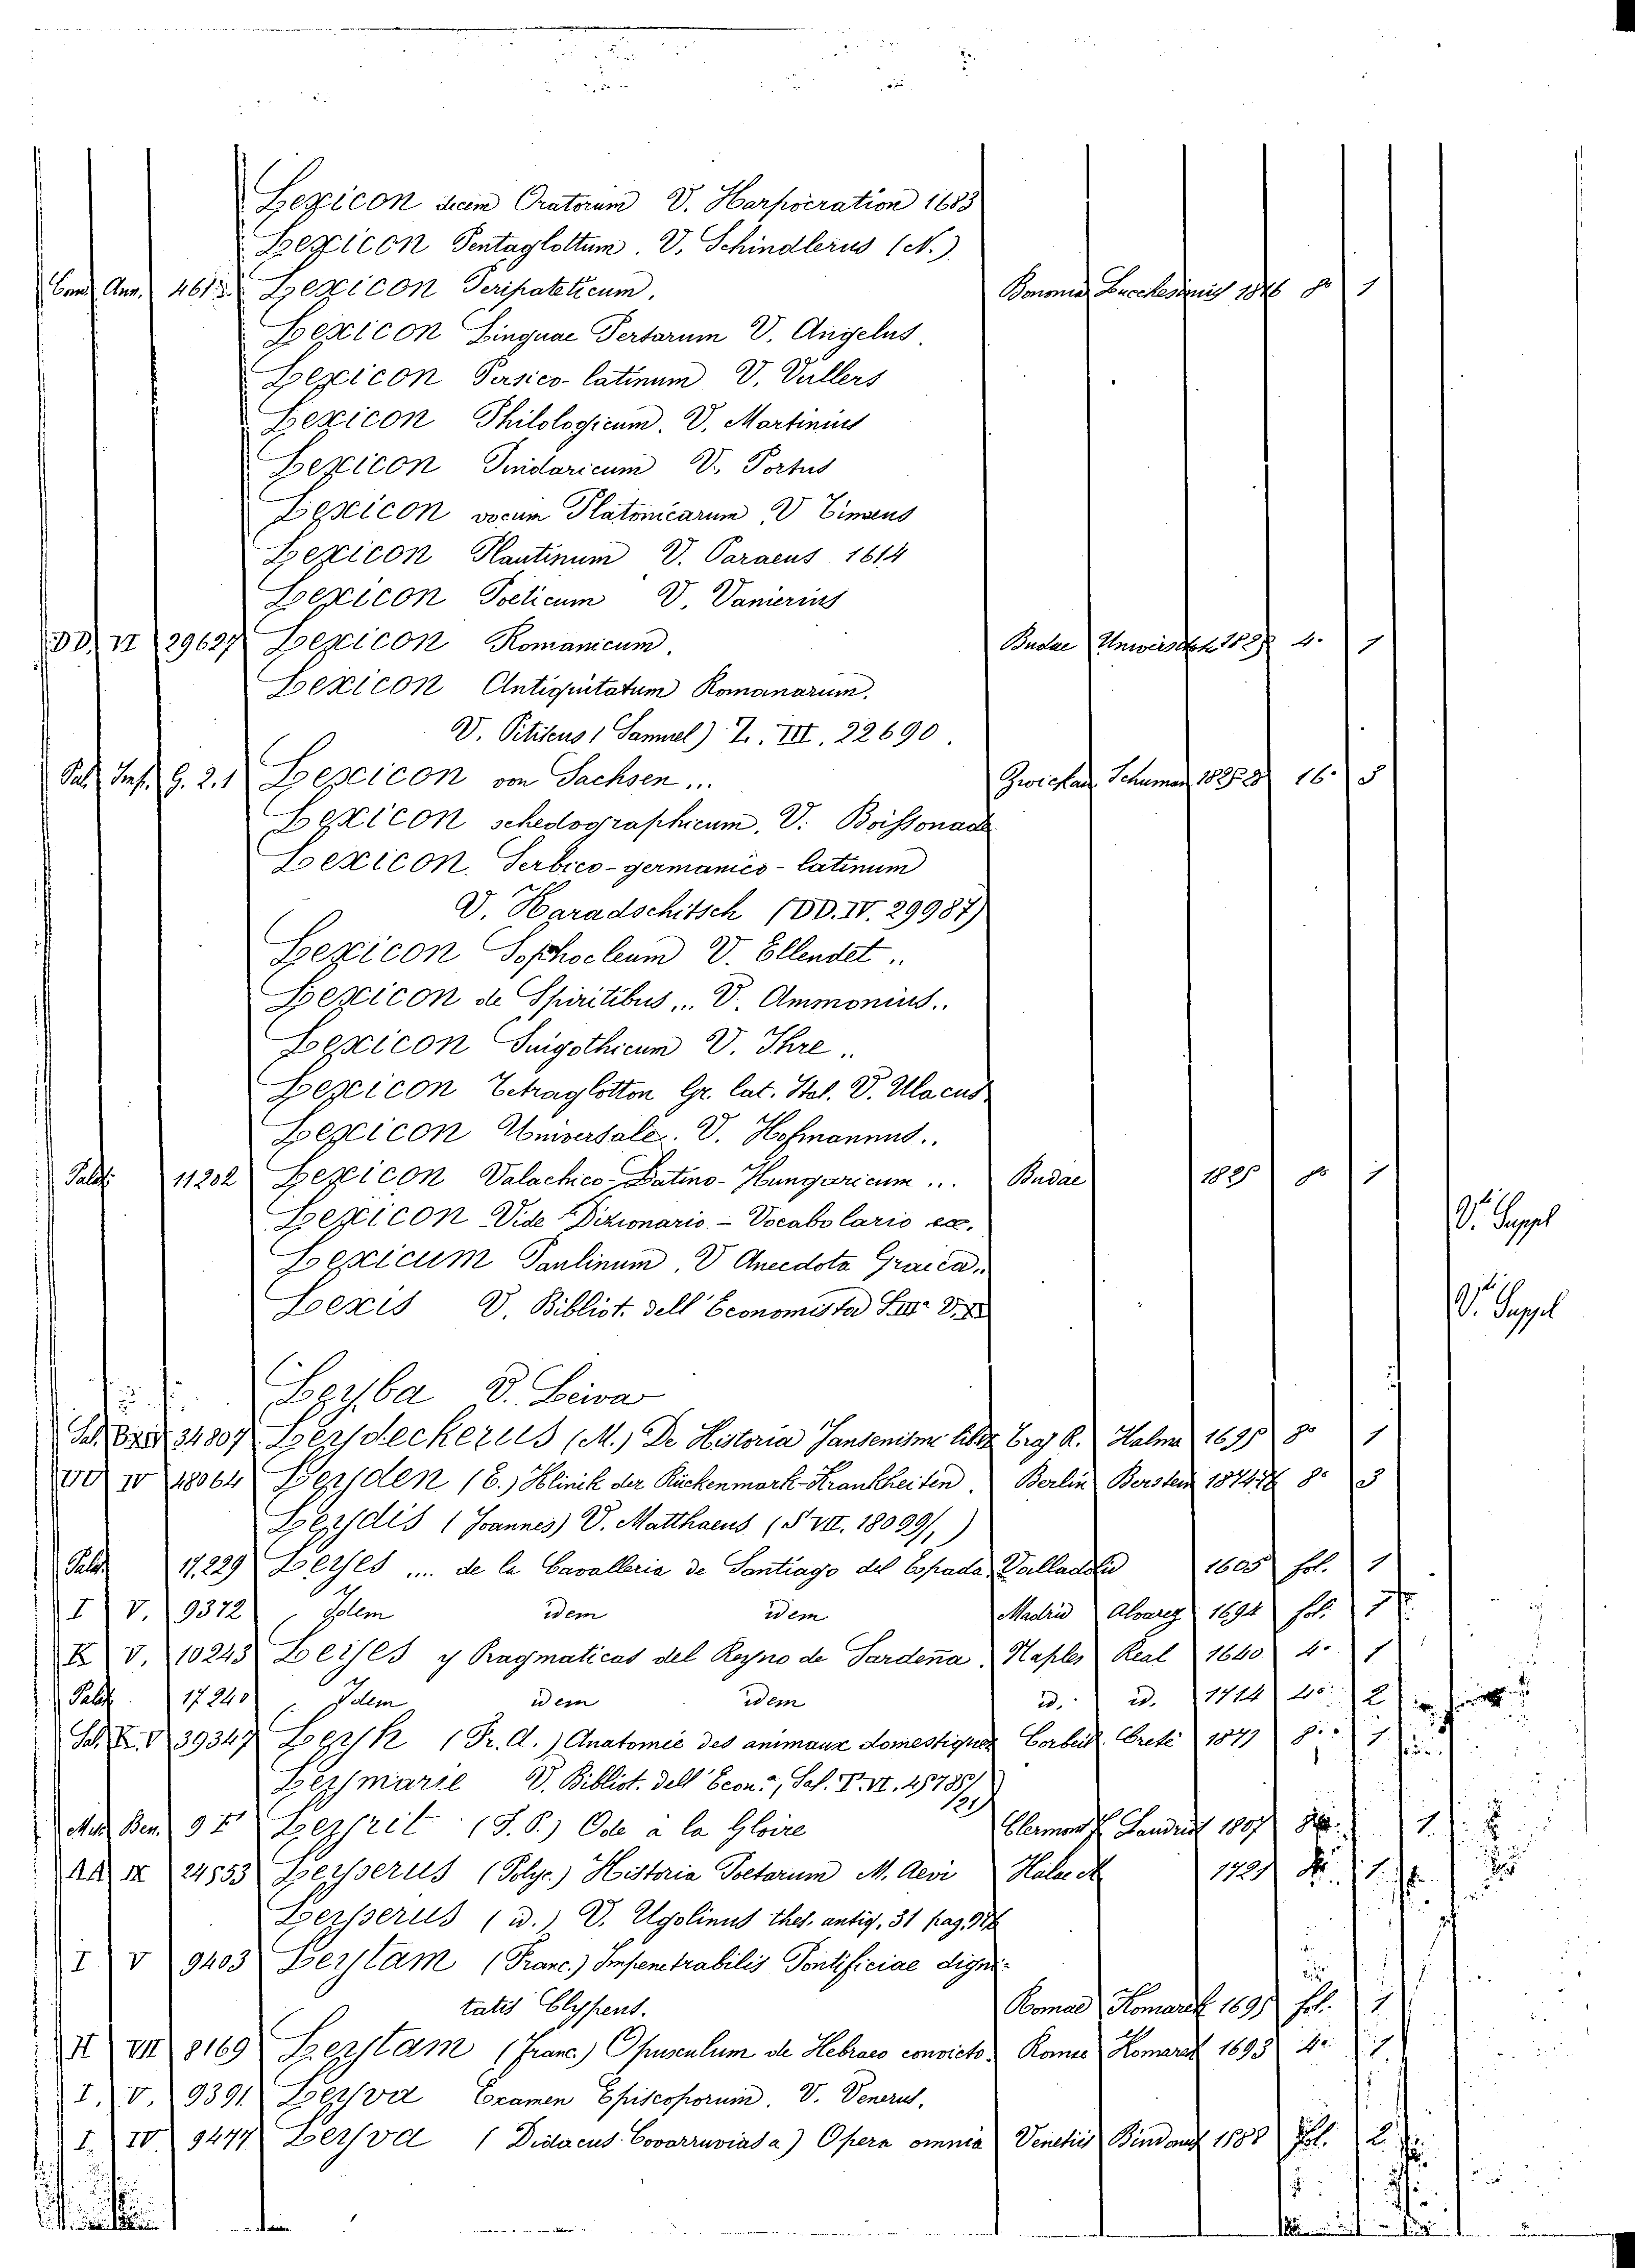 Lexicon decem Oratorum V. Harpocration 1683
Lexicon Pentaglottum. V. Schindlerus (N.)
Cam. Ann. 4613 Lexicon Peripateticum. Bononia 1846 8º 1
Lexicon Linguae Persarum V. Angelus.
Lexicon Persico-latinum V. Vullers
Lexicon Philologicum. V. Martinius
Lexicon Pindaricum V. Portus
Lexicon vocum Platonicarum, V Timaeus
Lexicon Plautinum V. Paraeus 1614
Lexicon Poeticum V. Vanierius
DD. VI 29627 Lexicon Romanicum. Budae 4. 1
Lexicon Antiquitatum Romanarum.
V. Pitiscus (Samuel) Z. III. 22690.
Sal. Inf. G. 2.1 Lexicon von Sachsen... Zwickau Schuman 16. 5
Lexicon schedographicum, V. Boissonade
Lexicon Serbico-germanico-latinum
V. Karadschitsch (DD. IV. 29987)
Lexicon Sophocleum V. Ellendet..
Lexicon de Spiritibus... V. Ammonius..
Lexicon Suigothicum V. Ihre..
Lexicon Tetraglotton Gr. lat. Ital. V. Ulacus
Lexicon Universale. V. Hofmannus..
Palat. 11202 Lexicon Valachico-Latino-Hungaricum... Budae 1825 8º 1
Lexicon Vide Dizionario.- Vocabolario ec. Vi. Suppl
Lexicum Paulinum, V Anecdota Graeca.
Lexis V. Bibliot. dell Economista S. III. Vi. Suppl
Leyba V. Leiva
34807 Leydeckerus (M.) De Historia Jansenismi Traj R. Halma 1695 8º 1
DD IV 48064 Leyden (E.) Klinik der Rückenmark-Krankheiten. Berlin 8º 3
Leydis (Joannes) V. Matthaeus (S VII. 18099/,)
Palat 17.229 Leyes .... de la Cavalleria de Santiago del Espada. Valladolid 1605 fol. 1
I V. 9372 Idem idem idem Madrid Alvarez 1694 fol. 1
V. 10243 Leyes y Pragmaticas del Reyno de Sardeña. Naples Real 1640 4º 1
Palat. 17240 Idem idem idem id. id. 1714 4º 2
39347 Leyh (Fr. A.) Anatomie des animaux domestiques Corbeil Crete 8º 1
Leymarie V. Bibliot. dell Econ.a, Sal. T. VI. 45785/21)
Mis. Ben. 9 Leyrit (S. P.) Ode a la Gloire Clermont f. Landriot 1807 1
AA IX 24553 Leyserus (Polyc.) Historia Poetarum M. Aevi Halae M. 1721 8º. 1
Leyserus (id.) V. Ugolinus thes. antiq. 31 pag.
I V 9403 Leytam (Franc.) Impenetrabilis Pontificiae digni-
tatis Clypeus. Romae Komarek 1695 fol. 1
II VII 8169 Leytam (Franc.) Opusculum de Hebraeo convicto. Romae Komarek 1693 4º 1
I. V. 9391 Leyva Examen Episcoporum. V. Venerus.
I. IV. 9477 Leyva (Didacus Covarruvias a) Opera omnia Venetiis 1588 fol. 2